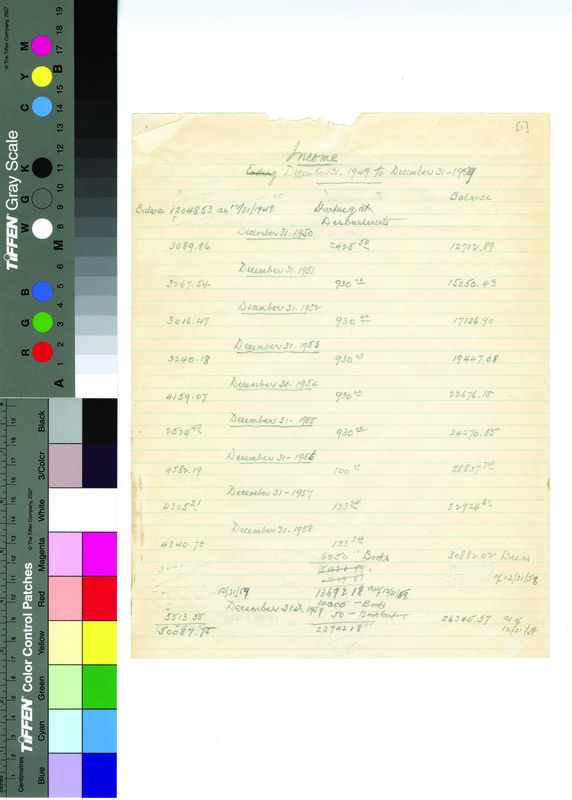 [1]
Income
Ending December 31-1949 to December 31-1959
Balance
Balance 1204853 as 12/31/1949. Starting at
Disbursements
December 31.1950
3089.86 2425 50 12712.89
December 31.1951
3267.54 930 00 15050.43
December 31.1952
3016.47 930 00 17136.90
December 31.1953
3240.18 930 00 19447.08
December 31-1954
4159.07 930 00 22676.15
December 31-1955
2524 40 930 00 24270.55
December 31-1956
4582.19 100 00
December 31-1957
4305 21 133 34 32924 61
December 31-1958
4340.75 133 34
6250 00 Books 30882.02
of 12/31/58
12/31/59 13692 18 as of 12/31/58
December 31st 1959 10000 - Books
5513.55 50 - Bookbinding 26345.57 as of
50087.75 23742 18 12/31/59
TIFFEN Gray Scale
© The Tiffen Company, 2007
R G B W G K C Y M
A 1 2 3 4 5 6 M 8 9 10 11 12 13 14 15 B 17 18 19
TIFFEN Color Control Patches
© The Tiffen Company, 2007
Centimetres
Blue Cyan Green Yellow Red Magenta White 3/Color Black